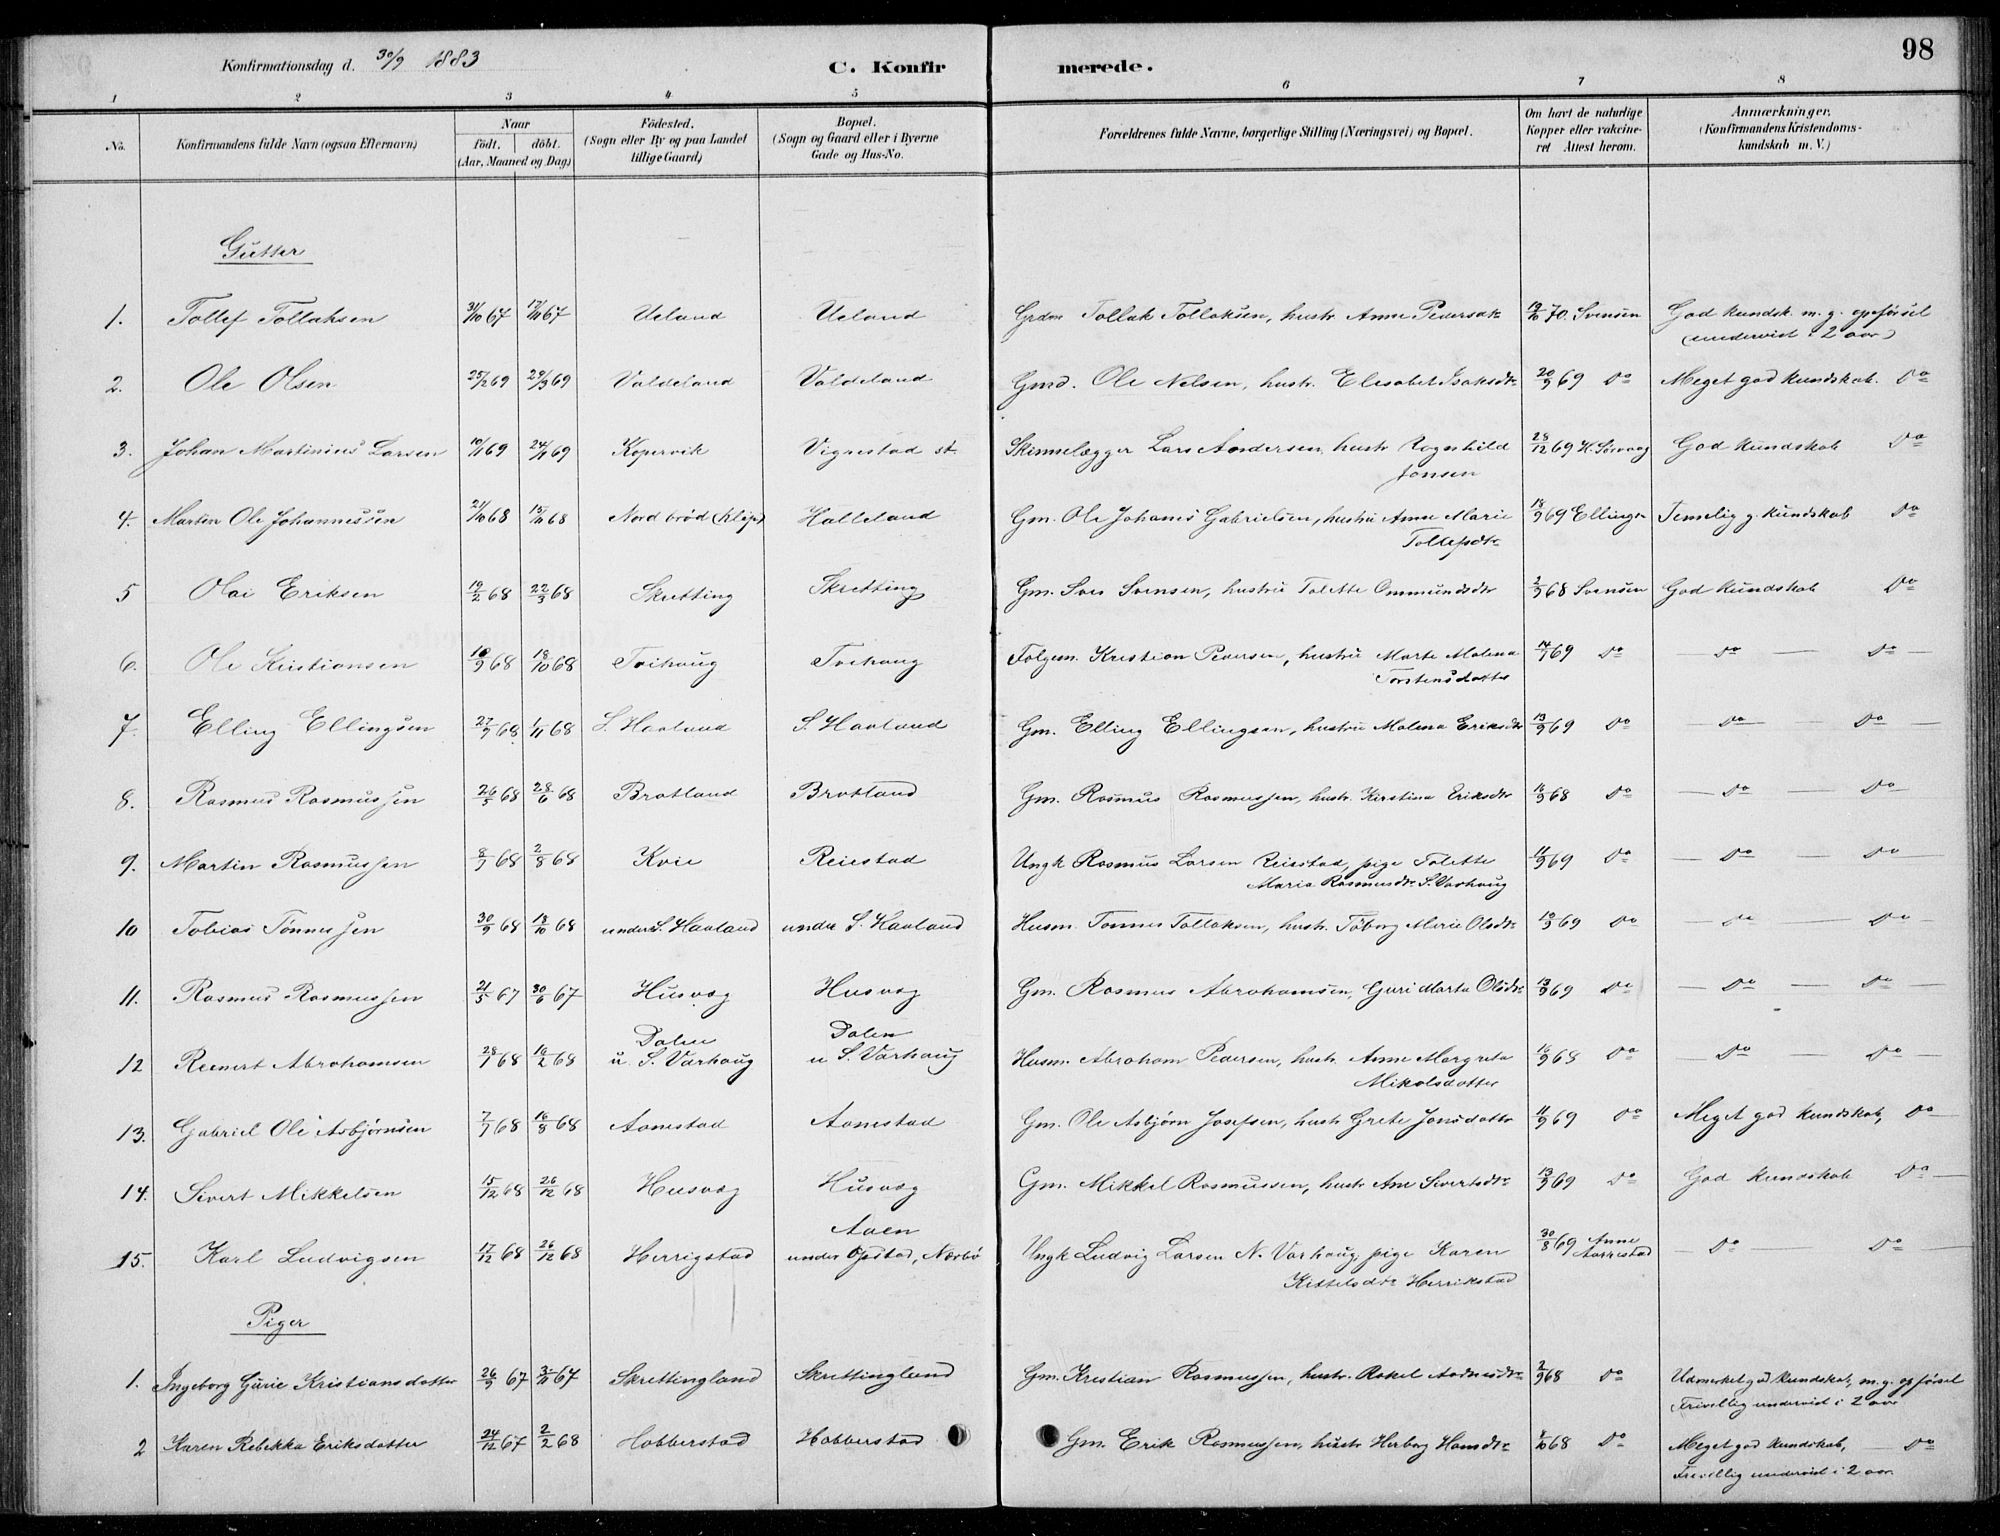 98
Konfirmationsdag d. 30/9 1883 C. Konfirmerede.
1 2 3 4 5 6 7 8
No. Konfirmandens fulde Navn (ogsaa Efternavn) Naar født. døbt. (Aar, Maaned og Dag) Fødested. (Sogn eller By og paa Landet tillige Gaard) Bopæl. (Sogn og Gaard eller i Byerne Gade og Hus-No. Forældrenes fulde Navne, borgerlige Stilling (Næringsvei) og Bopæl. Om havt de naturlige Kopper eller vakcineret Attest herom. Anmærkninger. (Konfirmandens Kristendomskundskab m. V.)
Gutter
1. Tollef Tollaksen 31/10 67 17/11 67 Ueland Ueland Grdm Tollak Tollaksen, hustr Anne Pedersdtr 19/10 70. Svensen God kundsk. m. g. opførsel
(undervist i 2 aar)
2. Ole Olsen 25/2 69 29/3 69 Valdeland Valdeland Gmd. Ole Nelsen, hustr. Elisabet Isaksdtr 20/9 69 Do Meget god kundskab. Do
3. Johan Martinius Larsen 10/1 69 24/1 69 Kopervik Vigrestad st. Skinnelægger Lars Andersen, hustr Ragnhild
Jonsen 28/12 69 H. Sørvaag God kundskab Do
4. Martin Ole Johannessen 21/10 68 15/11 68 Nord brød (Klep) Halleland Gm. Ole Johanes Gabrielsen, hustru Anne Marie
Tollefsdtr 18/9 69 Ellingsen Temelig g. kundskab Do
5 Olai Eriksen 19/2 68 22/3 68 Skretting Skretting Gm. Sven Svensen, hustru Tolette Ommundsdtr 2/9 68 Svensen God kundskab Do
6. Ole Kristiansen 10/9 68 18/10 68 Tvihaug Tvihaug Folgem. Kristian Pedersen, hustru Marte Malena
Torstensdatter 14/9 69 Do — Do — Do —
7. Elling Ellingsen 27/9 68 1/11 68 S. Haaland S. Haaland Gm. Elling Ellingsen, hustru Malena Eriksdtr 13/9 69 Do — Do — Do —
8. Rasmus Rasmussen 26/5 68 28/6 68 Bratland Bratland Gm. Rasmus Rasmussen, hustr. Kirstina Eriksdtr 16/9 68 Do — Do — Do
9. Martin Rasmussen 8/7 68 2/8 68 Kvie Reiestad Ungk Rasmus Larsen Reiestad, pige Tolette
Maria Rasmusdtr S. Varhaug 11/9 69 Do — Do — Do —
10 Tobias Tønnessen 30/9 68 18/10 68 under S. Haaland under S. Haaland Husm. Tonnes Tollaksen, hustr. Tøborg Marie Olsdtr 10/9 69 Do — Do — Do —
11. Rasmus Rasmussen 21/5 67 30/6 67 Husvæg Husvæg Gm. Rasmus Abrahamsen, Guri Marta Olsdtr 13/9 69 Do — Do — Do —
12 Reinert Abrahamsen 28/1 68 16/2 68 Dalen
u. S. Varhaug Dalen
u S. Varhaug Husm. Abraham Pedersen, hustr. Anne Margreta
Mikalsdatter 16/9 68 Do — Do — Do —
13. Gabriel Ole Asbjørnsen 7/7 68 16/8 68 Aanestad Aanestad Gm. Ole Asbjørn Josefsen, hustr Grete Jonsdatter 11/9 69 Do Meget god kundskab, Do
14. Sivert Mikkelsen 15/12 68 26/12 68 Husvæg Husvæg Gm. Mikkel Rasmussen, hustr Ane Sivertsdtr 13/9 69 Do God kundskab Do —
15. Karl Ludvigsen 17/12 68 26/12 68 Herrigstad Aaen
under Opstad, Nærbø Ungk Ludvig Larsen N. Varhaug, pige Karen
Kittelsdtr Herrikstad 30/8 69 Anne Aarrestad — Do — Do —
Piger
1. Ingeborg Gurie Kristiansdatter 26/9 67 3/11 67 Skrettingland Skrettingland Gm. Kristian Rasmussen, hustr. Rakel Aadnesdtr 2/9 68 Do Udmerket god kundskab, m. g. opførsel
Frivillig undervist i 2 aar
2 Karen Rebekka Eriksdatter 24/12 67 2/2 68 Hobberstad Hobberstad Gm. Erik Rasmussen, hustr Herborg Hansdtr 7/10 68 Do Meget god kundskab, Do
Frivillig undervist i 2 aar.